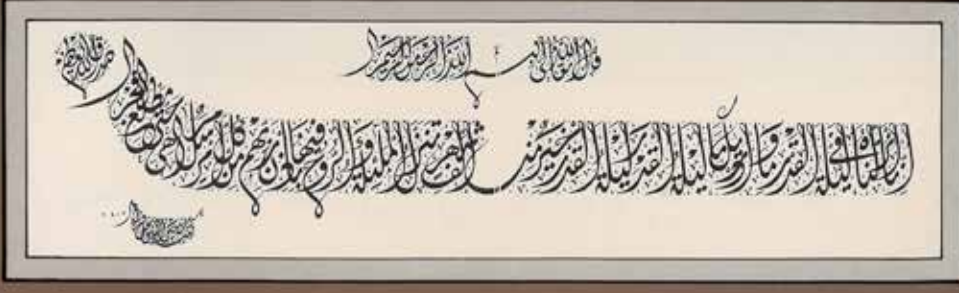 قال الله تعالى بسم الله الرحمن الرحيم
إنا أنزلناه في ليلة القدر وما أدراك ما ليلة القدر ليلة القدر خير من ألف شهر تنزل الملئكة والروح فيها بإذن ربهم من كل أمر سلام هي حتى مطلع الفجر
صدق الله العظيم